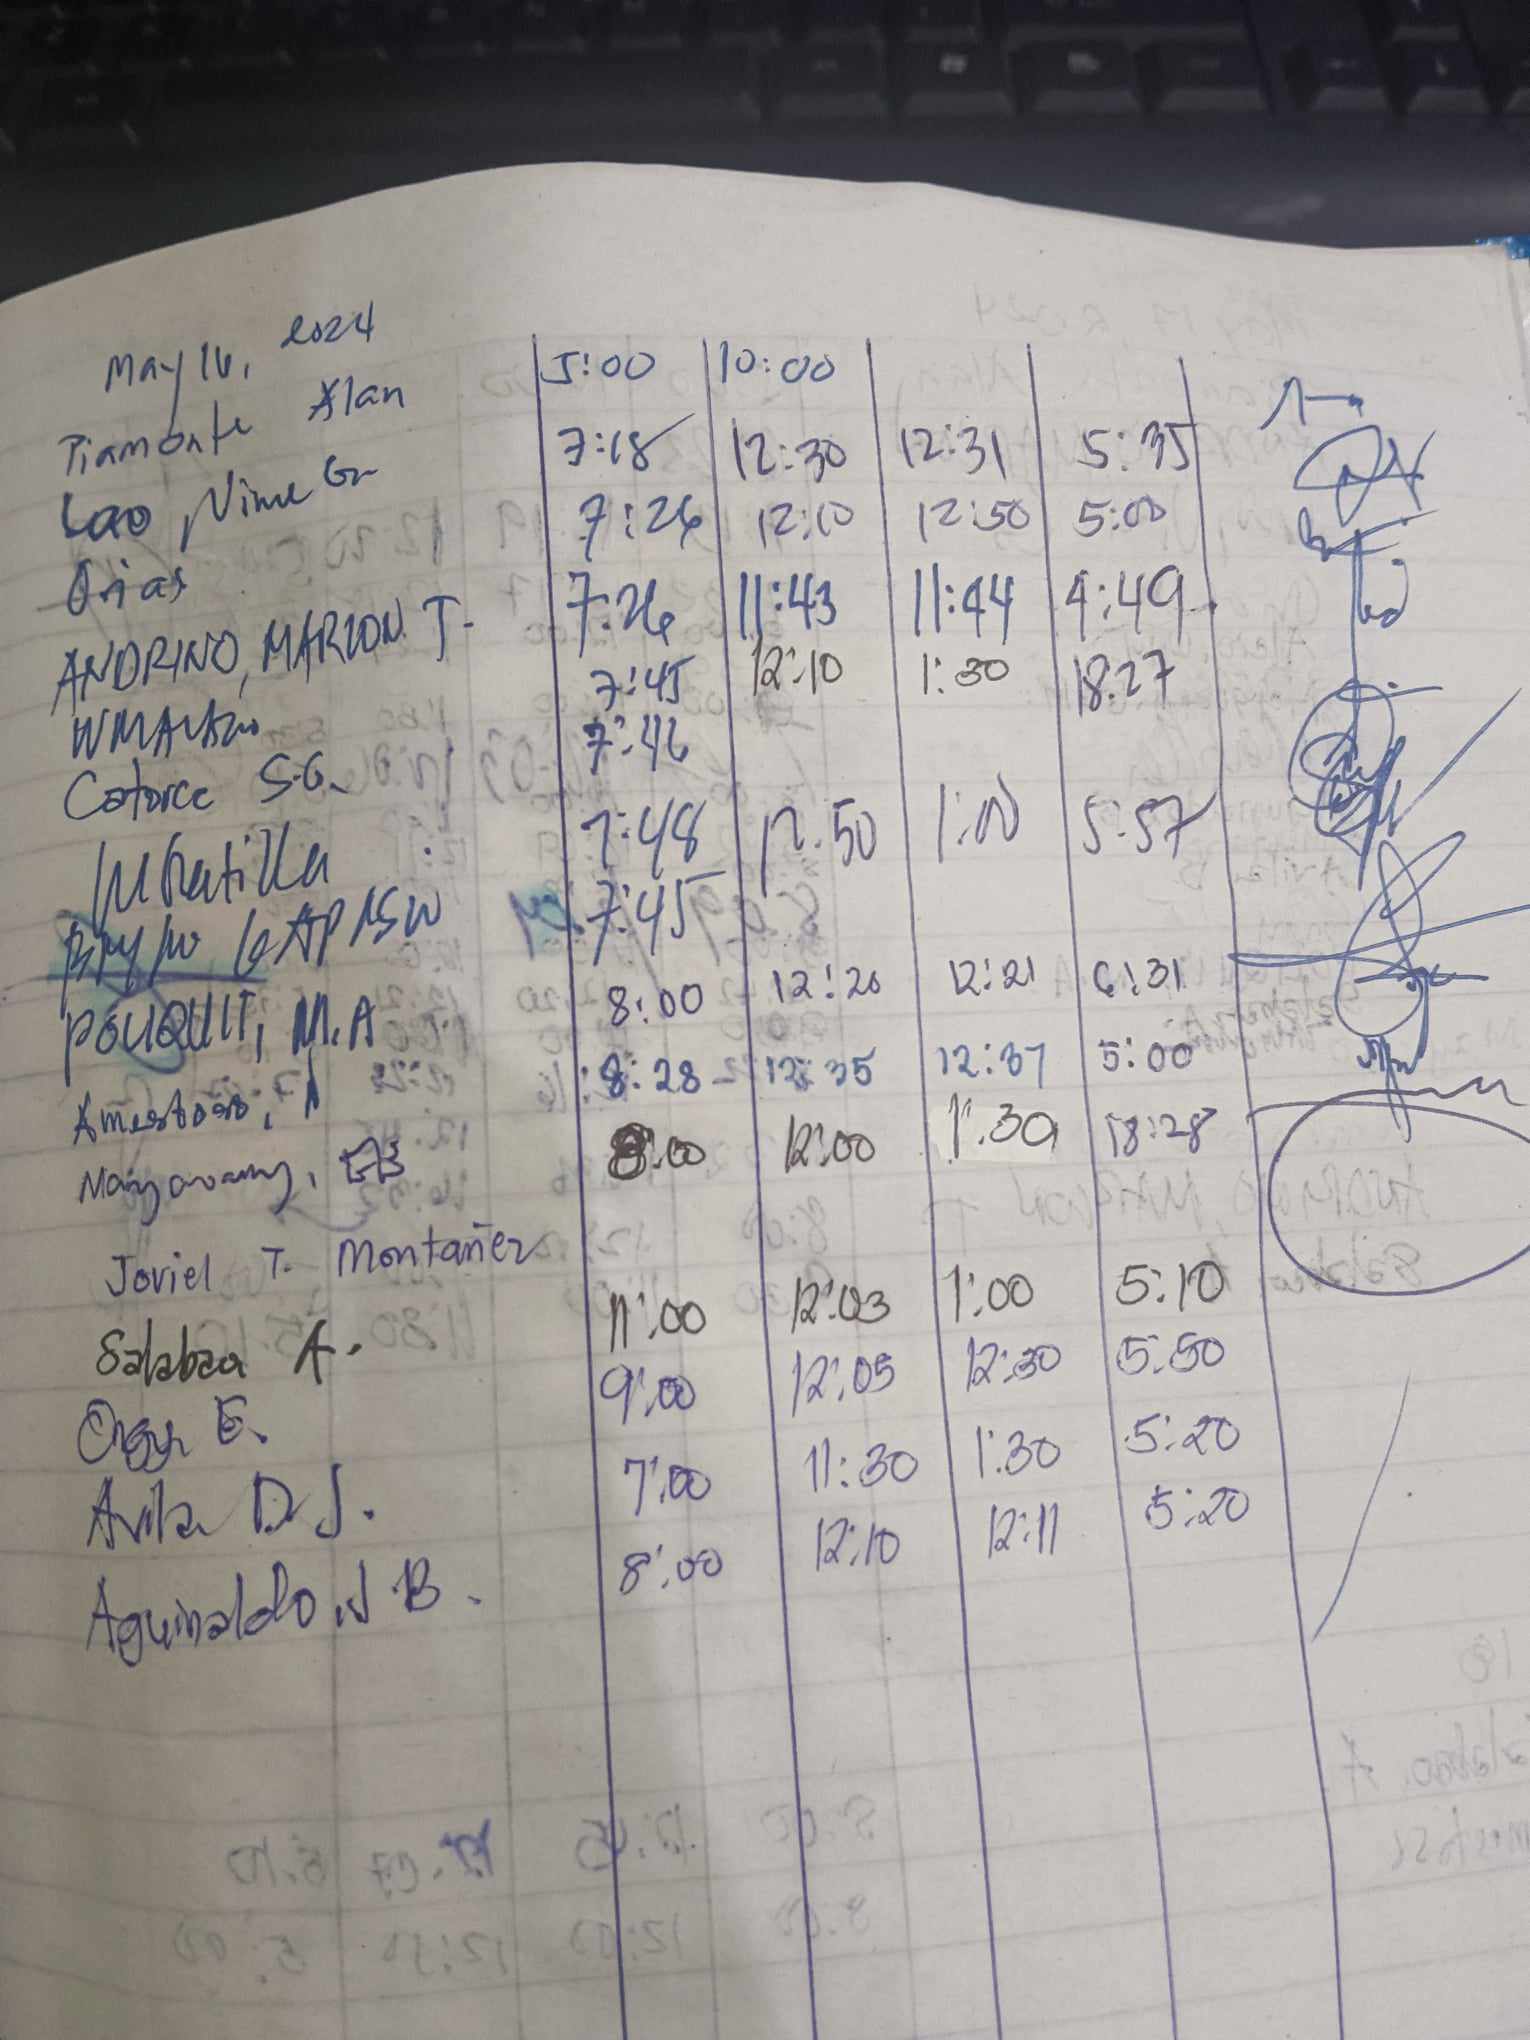 May 16, 2024
Piamonte Alan 5:00 10:00
Lao, 7:18 12:30 12:31 5:35
Orias 7:26 12:10 12:50 5:00
ANDRINO, MARION T. 7:26 11:43 11:44 4:49
7:45 12:10 1:30 18:27
Catorce S.G. 7:46
JM Ratilla 7:48 12.50 1:00 5:57
7:45
POUQUIT, M.A 8:00 12:20 12:21 6:31
Amestoso, A 8:28 12:35 12:37 5:00
8:00 12:00 1:30 18:28
Joviel T. Montañez
Salabao A. 11:00 12:03 1:00 5:10
E. 9:00 12:05 12:30 5:50
Avila D.J. 7:00 11:30 1:30 5:20
Aguinaldo, J.B. 8:00 12:10 12:11 5:20